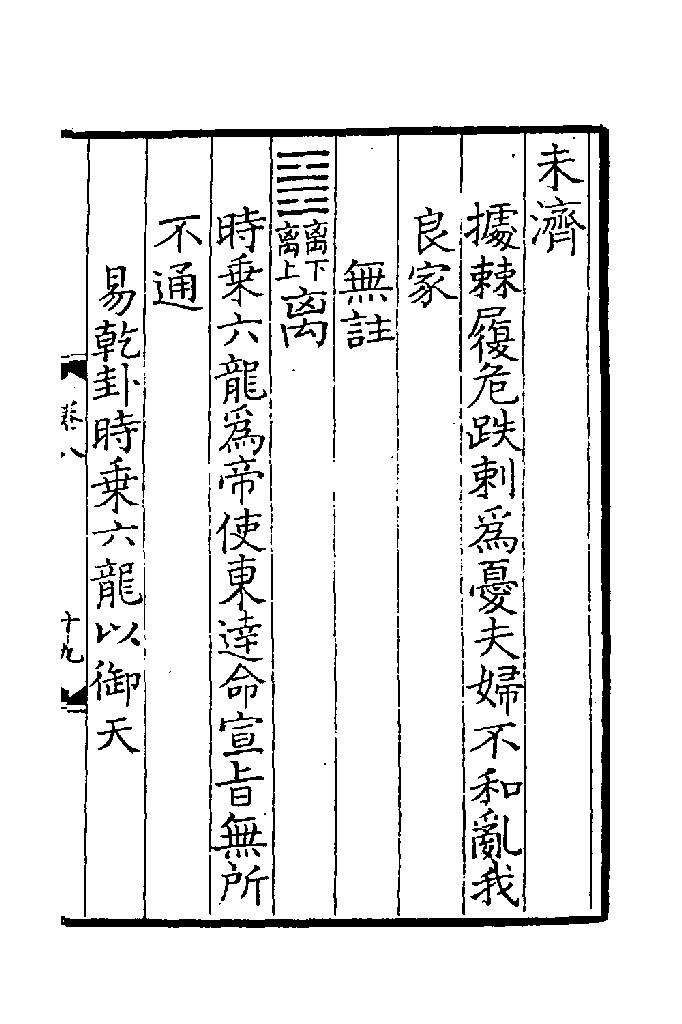 未濟
據棘履危跌刺為憂夫婦不和亂我
良家
無註
䷝離下離上离
時乗六龍為帝使東達命宣旨無所
不通
易乾卦時乗六龍以御天
卷八
十九